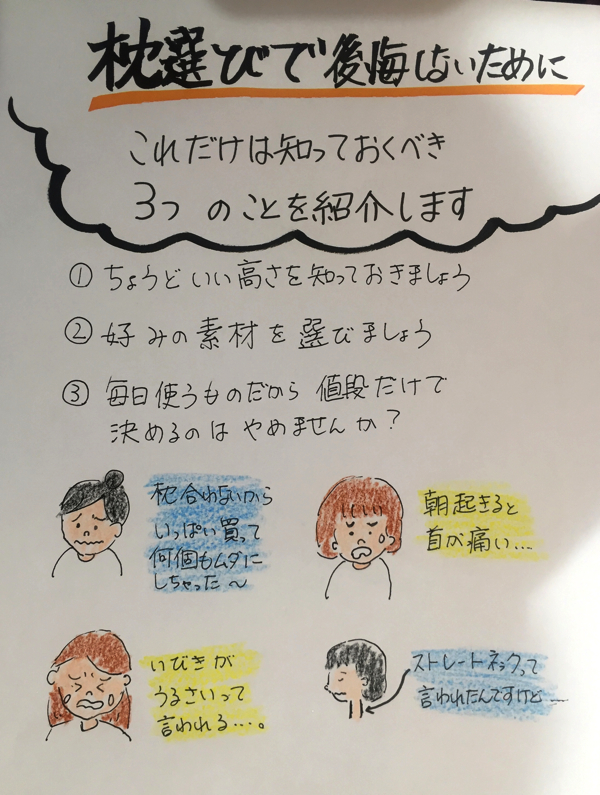 枕選びで後悔しないために
これだけは知っておくべき
3つ のことを紹介します
① ちょうどいい高さを知っておきましょう
② 好みの素材を選びましょう
③ 毎日使うものだから 値段だけで
決めるのは やめませんか?
枕合わないから
いっぱい買って
何個もムダに
しちゃった~
朝起きると
首が痛い...
いびきが
うるさいって
言われる....。
ストレートネックって
言われたんですけど...